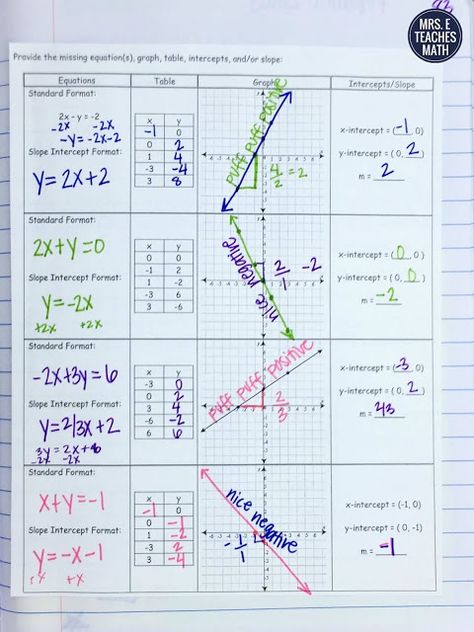 MRS. E
TEACHES
MATH
Provide the missing equation(s), graph, table, intercepts, and/or slope:
Equations Table Graph Intercepts/Slope
Standard Format:
2x - y = -2
-2x -2x
-y = -2x-2
Slope Intercept Format:
y = 2x + 2
x y
-1 0
0 2
1 4
-3 -4
3 8
puff puff positive
4/2 = 2
x-intercept = (-1, 0)
y-intercept = (0, 2)
m = 2
Standard Format:
2x + y = 0
Slope Intercept Format:
y = -2x
+2x +2x
x y
0 0
-1 2
1 -2
-3 6
3 -6
nice negative
2/1 -2
x-intercept = (0, 0)
y-intercept = (0, 0)
m = -2
Standard Format:
-2x + 3y = 6
Slope Intercept Format:
y = 2/3x + 2
3y = 2x + 6
-2x -2x
x y
-3 0
0 2
3 4
-6 -2
6 6
puff puff positive
2/3
x-intercept = (-3, 0)
y-intercept = (0, 2)
m = 2/3
Standard Format:
x + y = -1
Slope Intercept Format:
y = -x - 1
+x +x
x y
-1 0
0 -1
1 -2
-3 2
3 -4
nice negative
-1/1
x-intercept = (-1, 0)
y-intercept = (0, -1)
m = -1